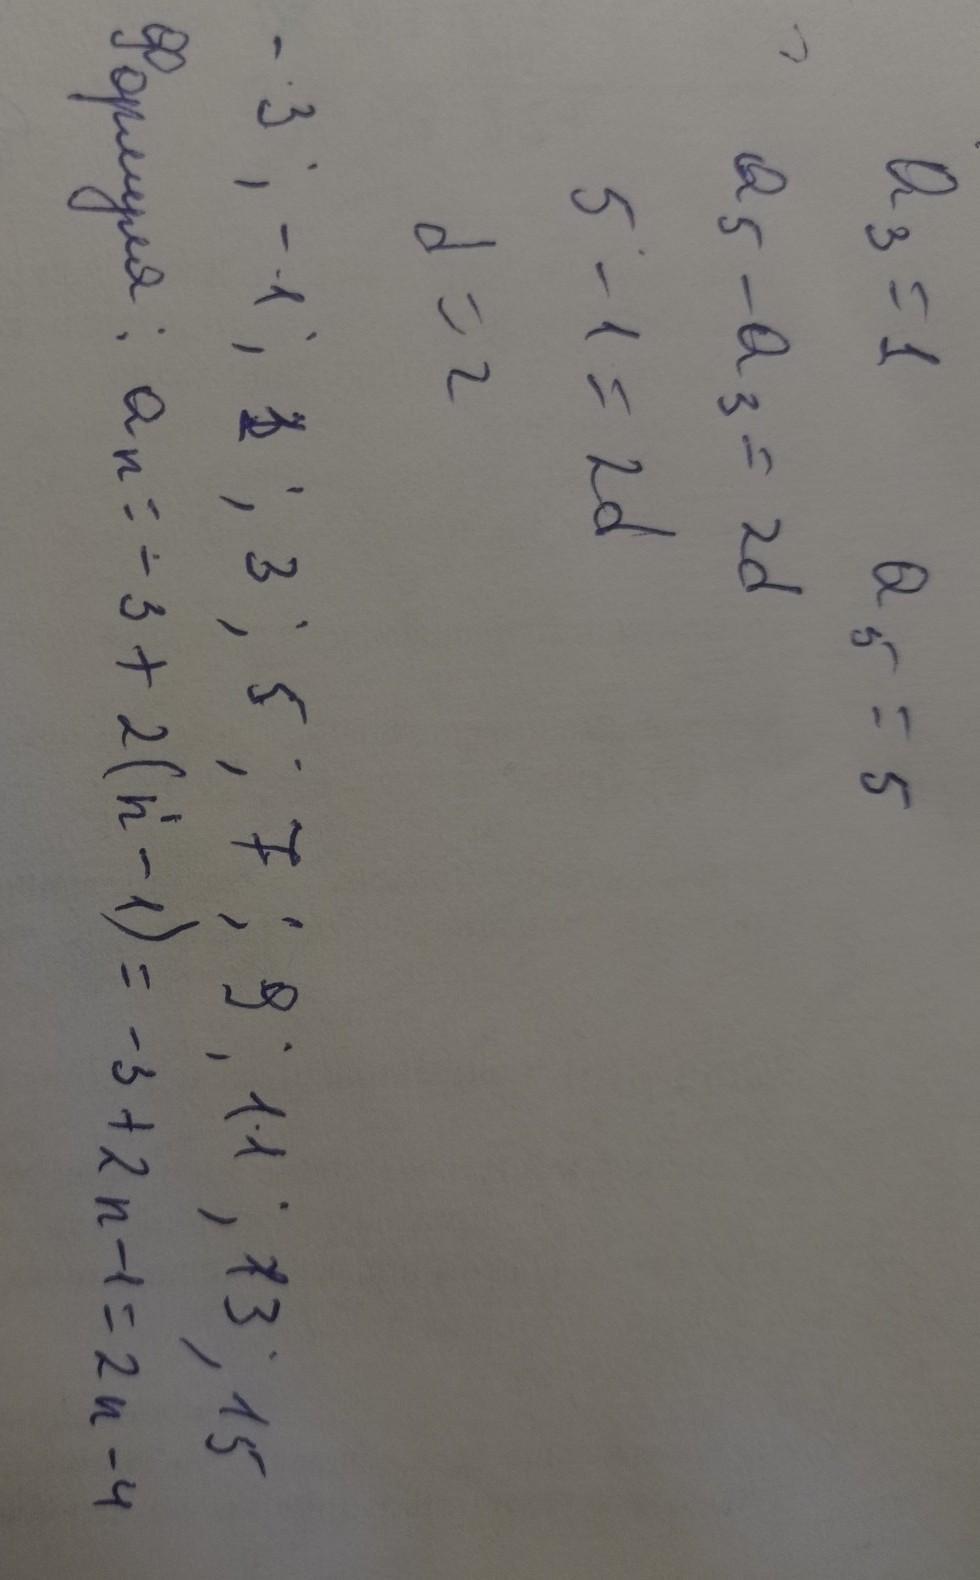 a₃ = 1 a₅ = 5
a₅ - a₃ = 2d
5 - 1 = 2d
d = 2
-3; -1; 1; 3; 5; 7; 9; 11; 13; 15
Формула: aₙ = -3 + 2(n - 1) = -3 + 2n - 1 = 2n - 4